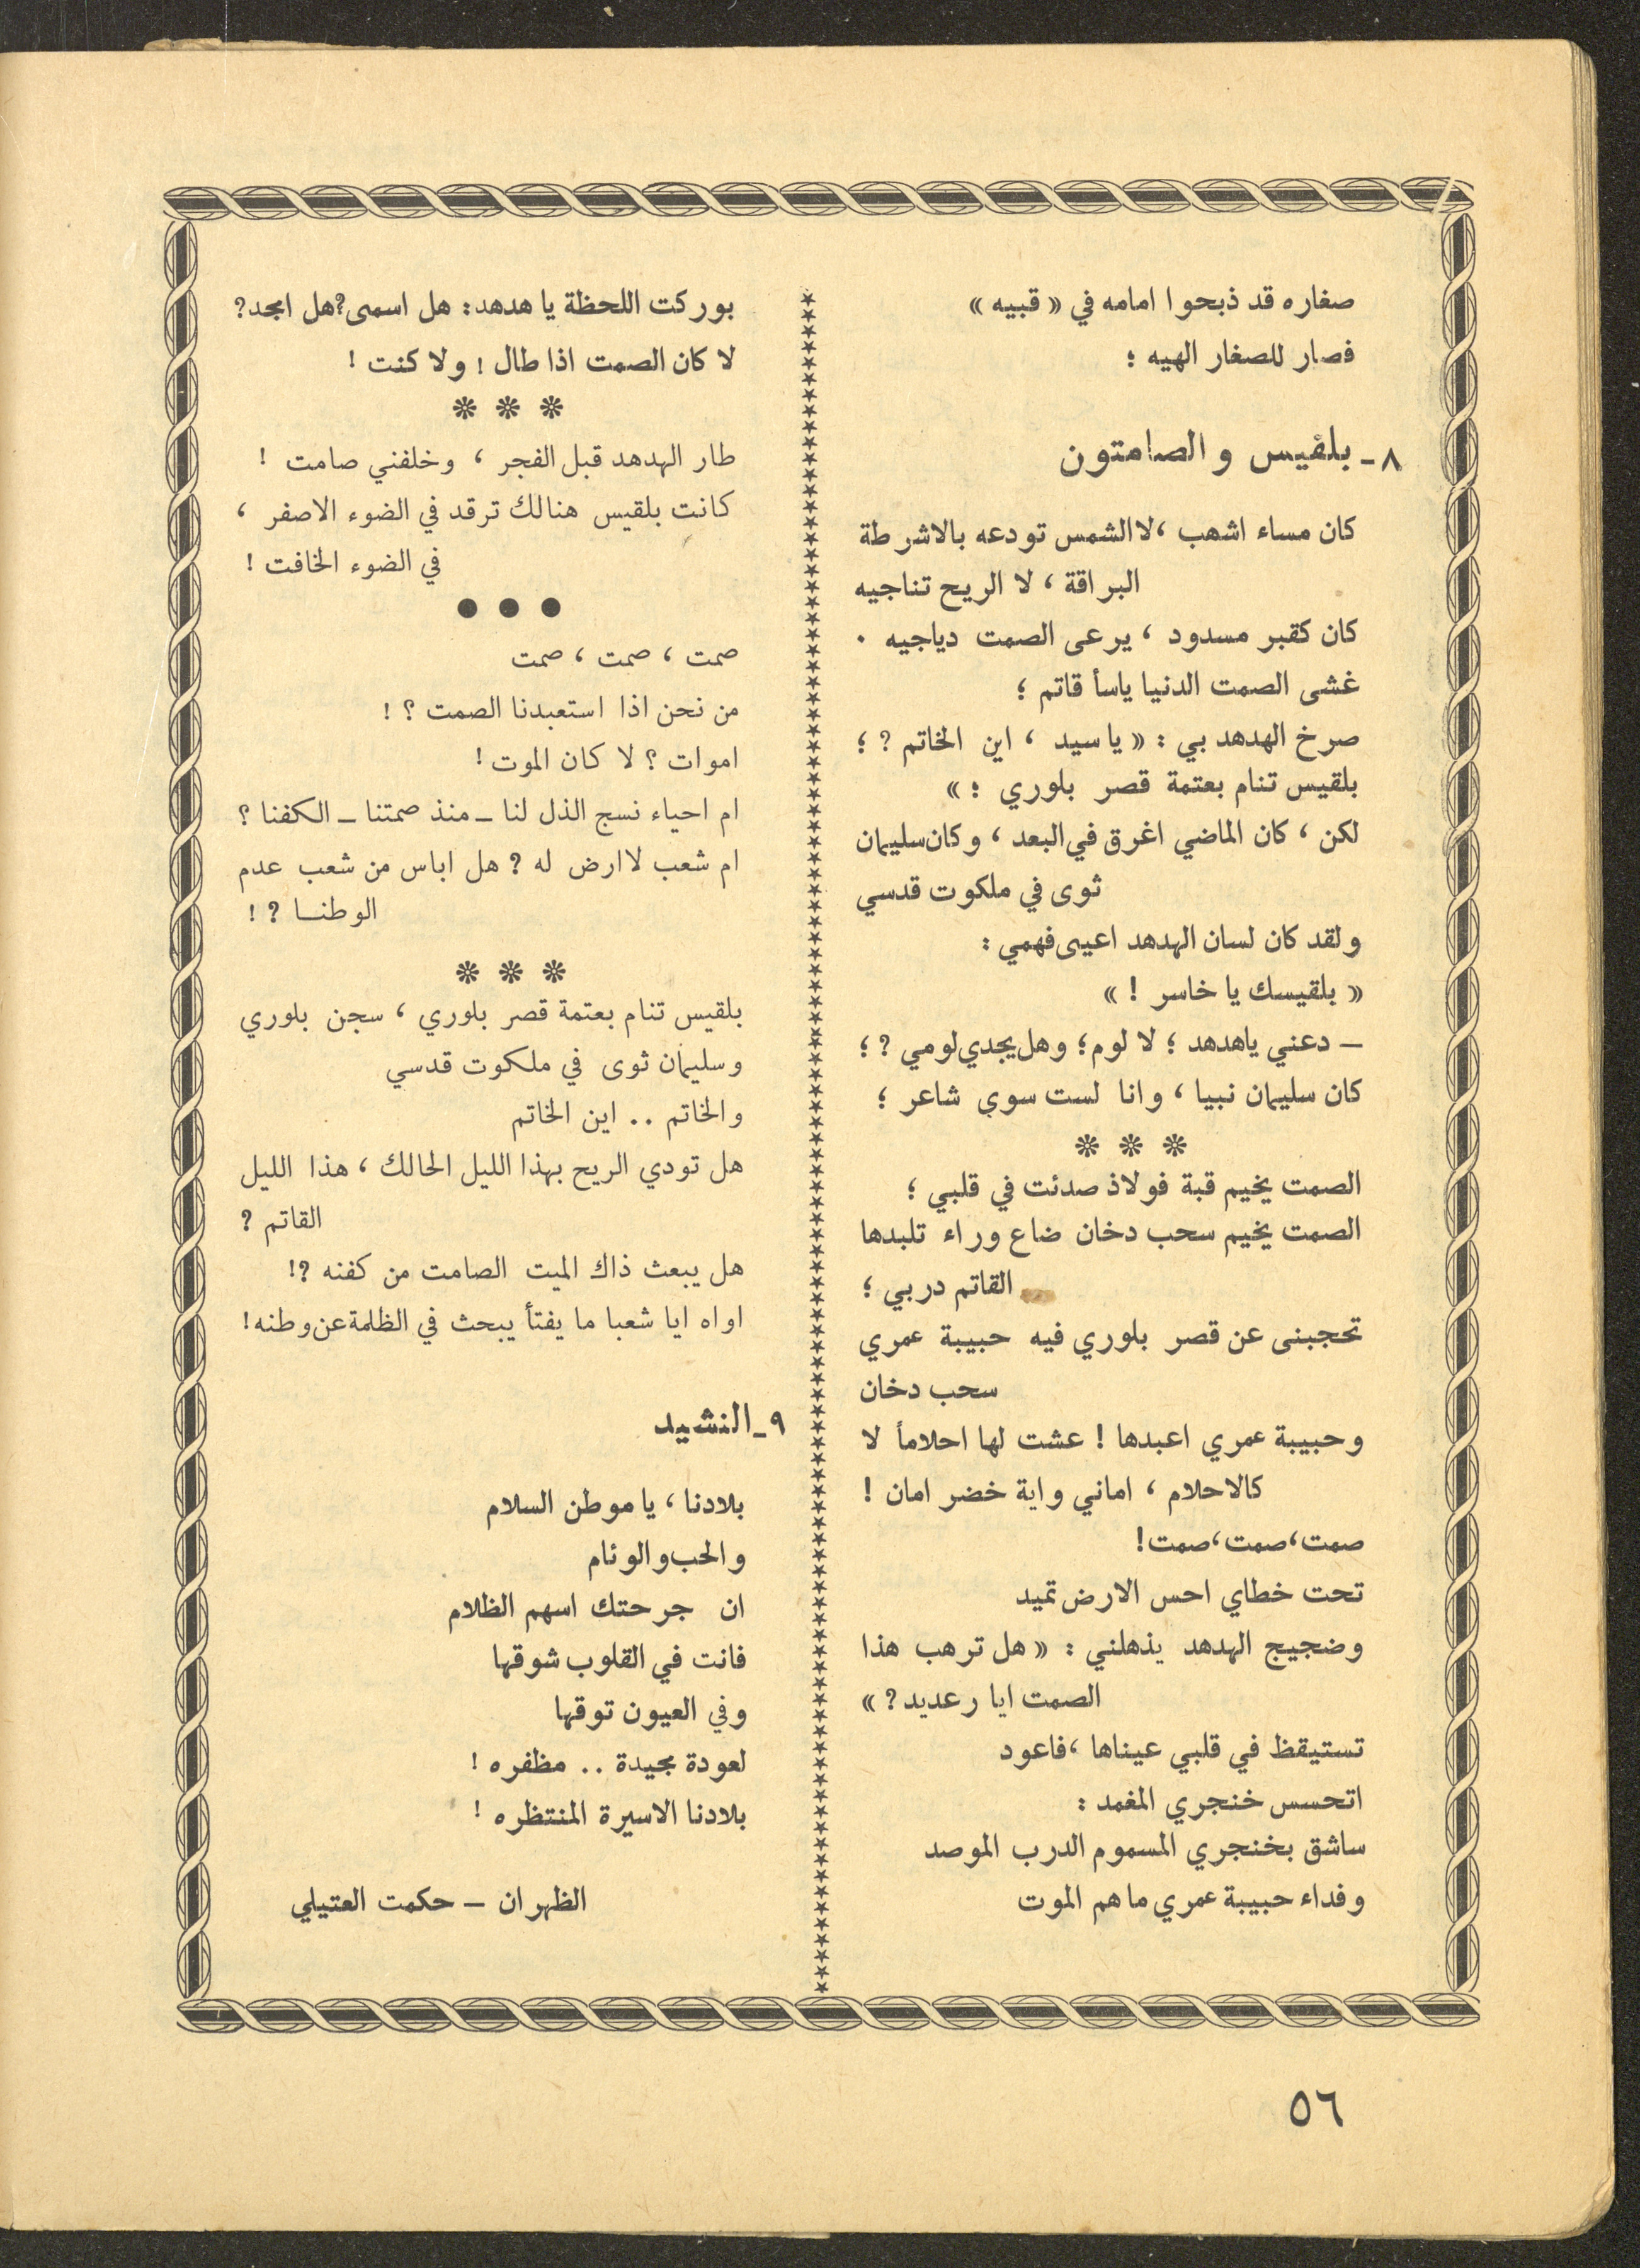 صغاره قد ذبحوا امامه في « قبيه »
فصار للصغار الهيه ؛
٨ـ بلقيس و الصامتون
كان مساء اشهب ، لا الشمس تودعه بالاشرطة
البراقة ، لا الريح تناجيه
كان كقبر مسدود ، يرعى الصمت دياجيه .
غشى الصمت الدنيا ياسأ قاتم ؛
صرخ الهدهد بي : « يا سيد ، اين الخاتم ? ؛
بلقيس تنام بعتمة قصر بلوري ؛ »
لكن ، كان الماضي اغرق في البعد ، وكان سليمان
ثوى في ملكوت قدسي
ولقد كان لسان الهدهد اعيى فهمي :
« بلقيسك يا خاسر ! »
— دعني ياهدهد ؛ لا لوم ؛ وهل يجدي لومي ? ؛
كان سليمان نبيا ، وانا لست سوى شاعر ؛
* * *
الصمت يخيم قبة فولاذ صدئت في قلبي ؛
الصمت يخيم سحب دخان ضاع وراء تلبدها
القاتم دربي ؛
تحجبنى عن قصر بلوري فيه حبيبة عمري
سحب دخان
وحبيبة عمري اعبدها ! عشت لها احلامأ لا
كالاحلام ، اماني واية خضر امان !
صمت ، صمت ، صمت !
تحت خطاي احس الارض تميد
وضجيج الهدهد يذهلني : « هل ترهب هذا
الصمت ايا رعديد ? »
تستيقظ في قلبي عيناها ، فاعود
اتحسس خنجري المغمد :
ساشق بخنجري المسموم الدرب الموصد
وفداء حبيبة عمري ما هم الموت
بوركت اللحظة يا هدهد : هل اسمى ? هل امجد ?
لا كان الصمت اذا طال ؛ ولا كنت !
* * *
طار الهدهد قبل الفجر ، وخلفني صامت !
كانت بلقيس هنالك ترقد في الضوء الاصفر ،
في الضوء الخافت !
● ● ●
صمت ، صمت ، صمت
من نحن اذا استعبدنا الصمت ؟ !
اموات ؟ لا كان الموت !
ام احياء نسج الذل لنا ـ منذ صمتنا ـ الكفنا ؟
ام شعب لا ارض له ? هل اباس من شعب عدم
الوطنــا ? !
* * *
بلقيس تنام بعتمة قصر بلوري ، سجن بلوري
وسليمان ثوى في ملكوت قدسي
والخاتم .. اين الخاتم
هل تودي الريح بهذا الليل الحالك ، هذا الليل
القاتم ?
هل يبعث ذاك الميت الصامت من كفنه ?!
اواه ايا شعبا ما يفتأ يبحث في الظلمة عن وطنه !
٩ـ النشيد
بلادنا ، يا موطن السلام
والحب والوئام
ان جرحتك اسهم الظلام
فانت في القلوب شوقها
وفي العيون توقها
لعودة مجيدة .. مظفره !
بلادنا الاسيرة المنتظره !
الظهران — حكمت العتيلي
٥٦